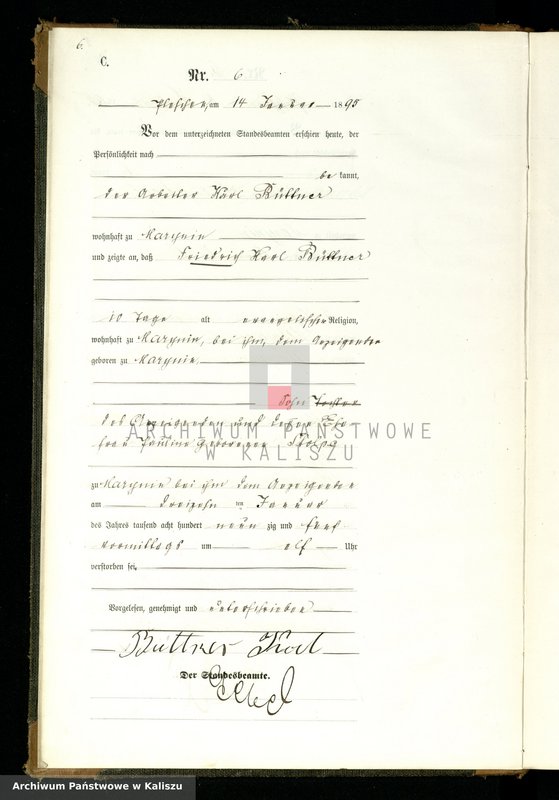 6.
C.
Nr. 6
Pleschen, am 14 Januar 1895
Vor dem unterzeichneten Standesbeamten erschien heute, der
Persönlichkeit nach
be kannt,
der Arbeiter Karl Büttner
wohnhaft zu Marynin
und zeigte an, daß Friedrich Karl Büttner
10 Tage alt evangelischer Religion,
wohnhaft zu Marynin, bei ihm, dem Anzeigenden
geboren zu Marynin
Sohn Tochter
des Anzeigenden und dessen Ehe
frau Pauline geborenen
ARCHIWUM PAŃSTWOWE
W KALISZU
zu Marynin bei ihm dem Anzeigenden
am dreizehn ten Januar
des Jahres tausend acht hundert neun zig und fünf
vormittags um elf Uhr
verstorben sei.
Vorgelesen, genehmigt und unterschrieben
Büttner Karl
Der Standesbeamte.
Archiwum Państwowe w Kaliszu